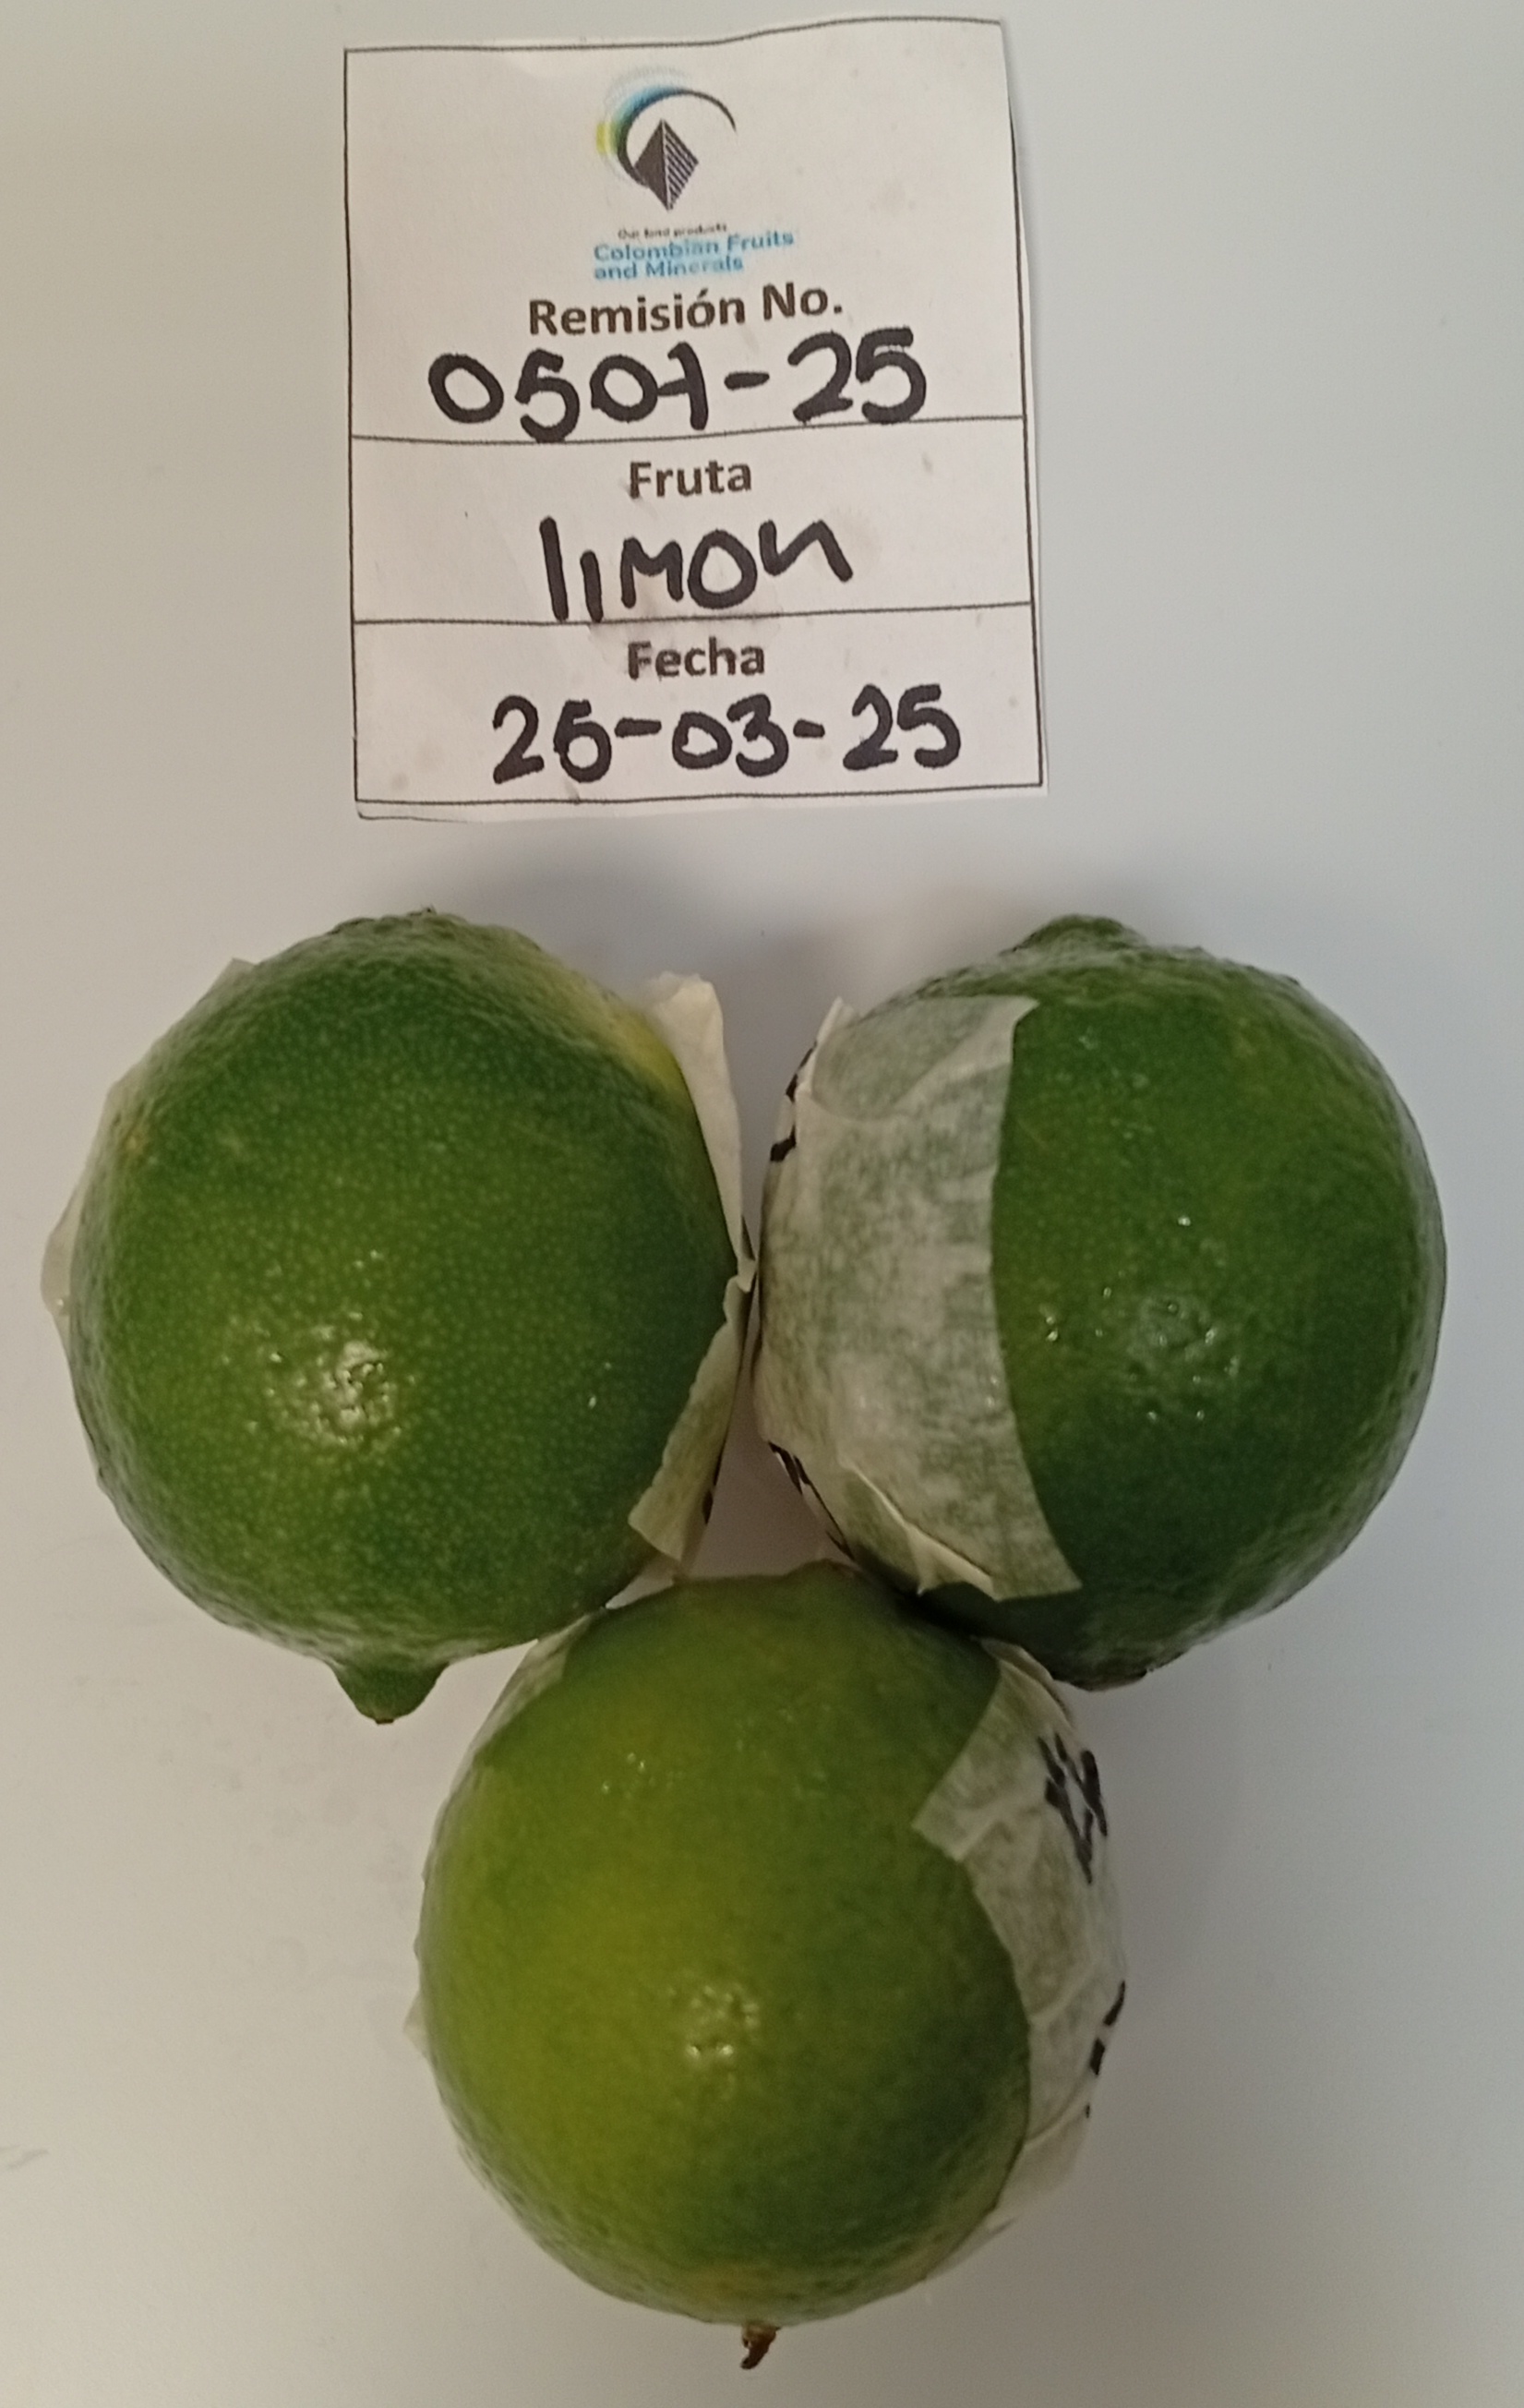 Our food products
Colombian Fruits
and Minerals
Remisión No.
0501-25
Fruta
limon
Fecha
26-03-25